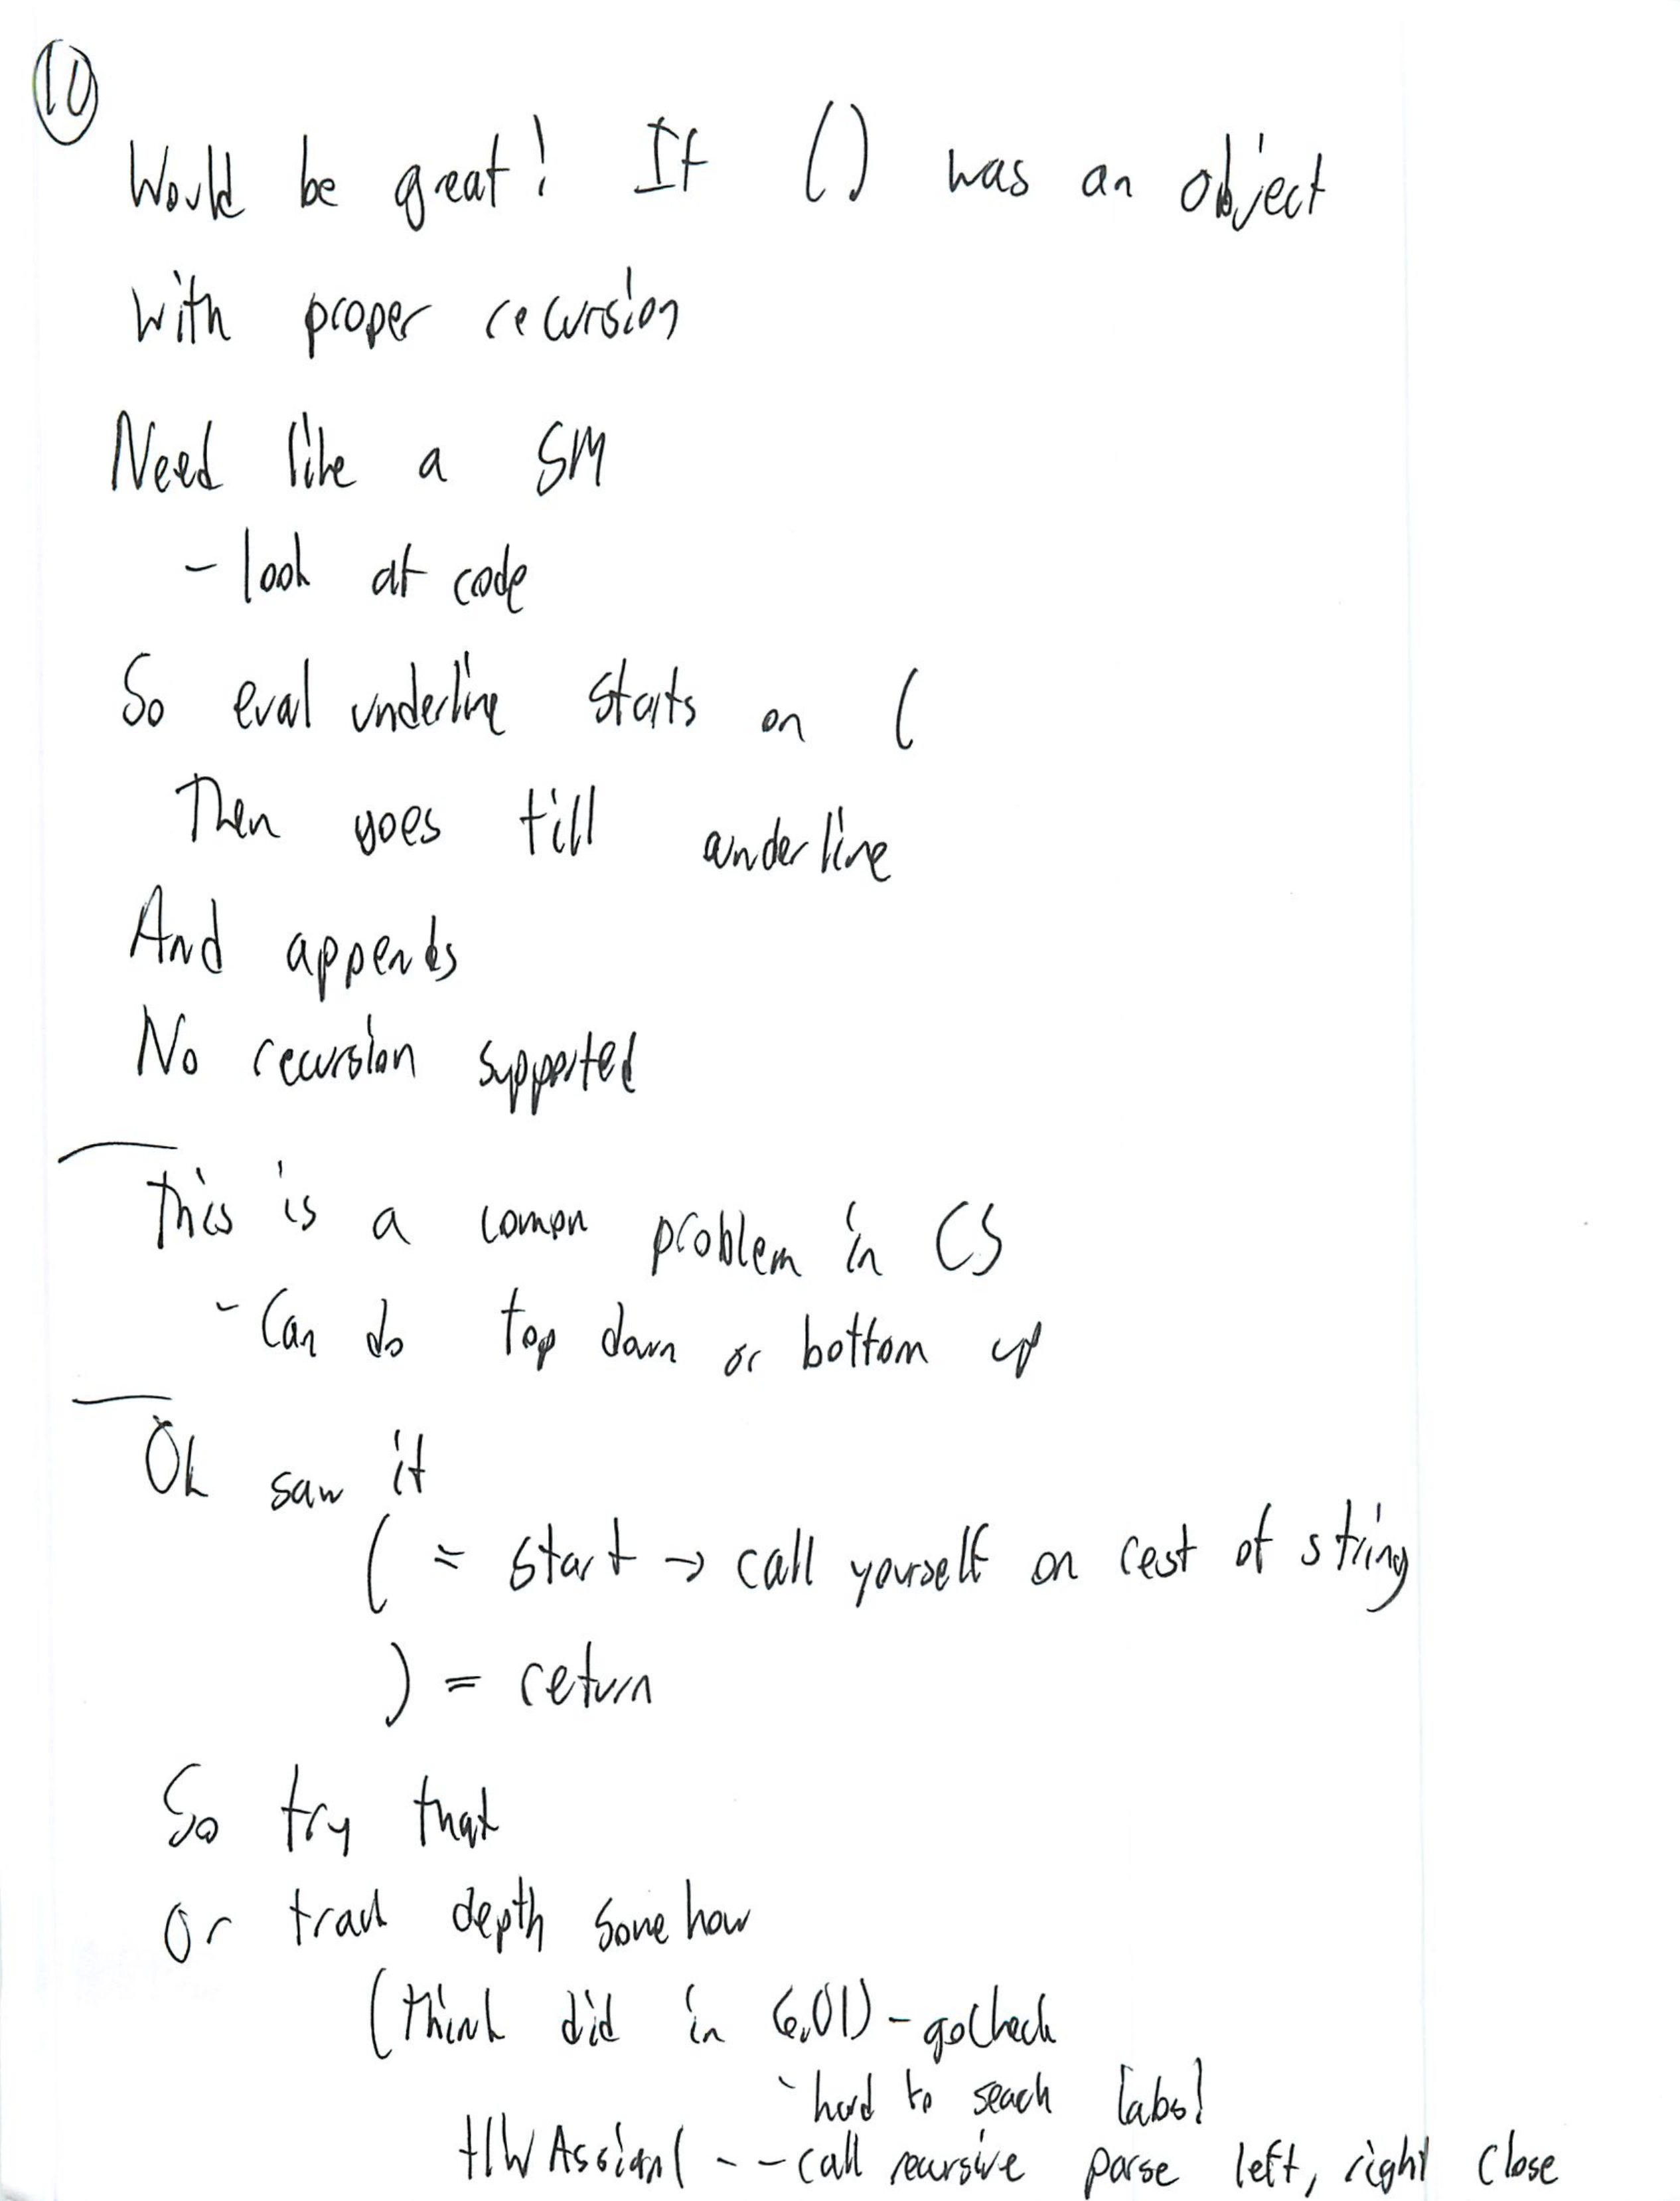 10
Would be great! If () was an object
with proper recursion
Need like a SM
- look at code
So eval underline starts on (
Then goes till underline
And appends
No recursion supported
This is a comon problem in CS
- Can do top down or bottom up
Oh saw it
( = start → call yourself on rest of string
) = return
So try that
or track depth somehow
(think did in 6.01) - go check
- hard to seach labs!
HW Assign 1 - - call recursive parse left, right close